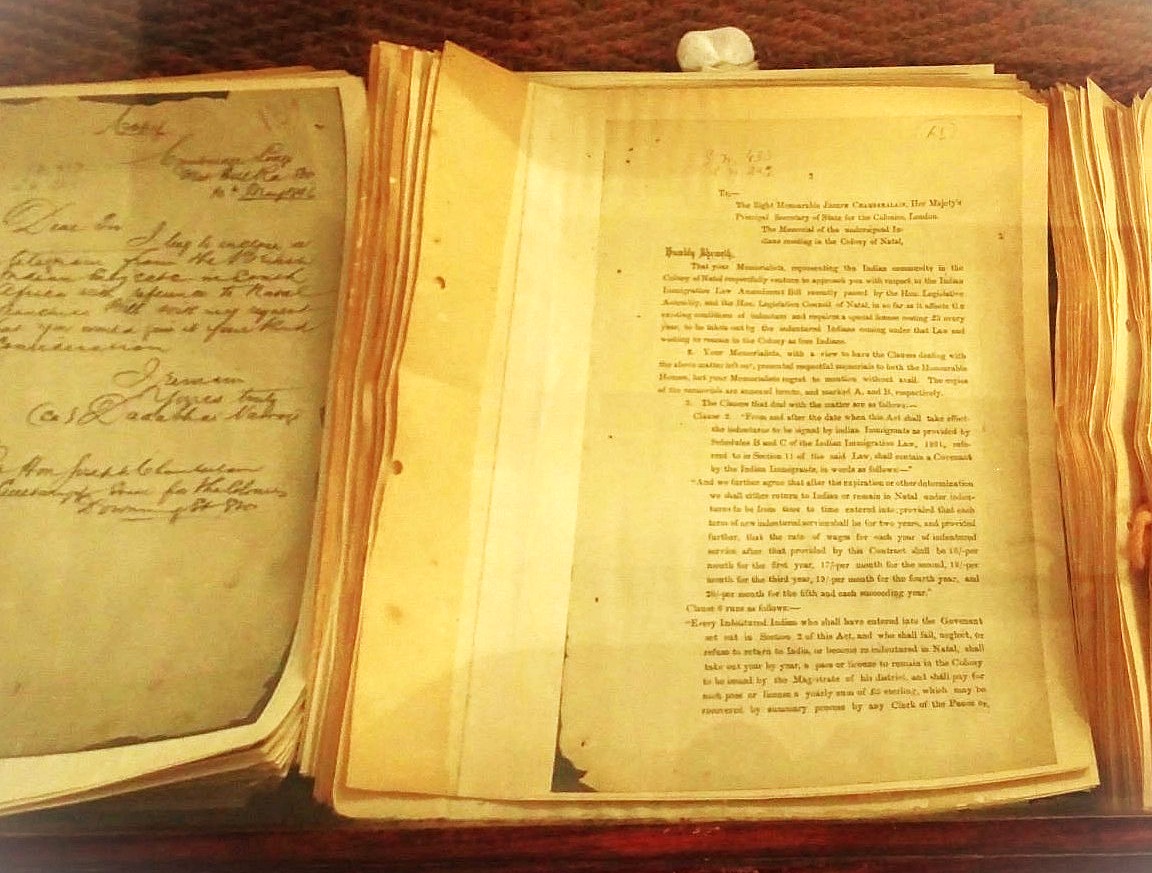 Copy
Dear Sir
I beg to enclose a
telegram from the
Indian
reference to
Franchise Bill
Consideration
I remain
Yours truly
Dadabhai
Hon Joseph Chamberlain
for the Colonies
Downing St
To,—
The Right Honourable JOSEPH CHAMBERALAIN, Her Majesty's
Principal Secretary of State for the Colonies, London.
The Memorial of the undersigned In-
dians residing in the Colony of Natal,
Humbly Sheweth,
That your Memorialists, representing the Indian community in the
Colony of Natal respectfully venture to approach you with respect to the Indian
Immigration Law Amendment Bill recently passed by the Hon. Legislative
Assembly, and the Hon. Legislative Council of Natal, in so far as it affects the
existing conditions of indenture and requires a special license costing £3 every
year, to be taken out by the indentured Indians coming under that Law and
wishing to remain in the Colony as free Indians.
2. Your Memorialists, with a view to have the Clauses dealing with
the above matter left out, presented respectful memorials to both the Honourable
Houses, but your Memorialists regret to mention without avail. The copies
of the memorials are annexed hereto, and marked A. and B. respectively.
3. The Clauses that deal with the matter are as follows:—
Clause 2. "From and after the date when this Act shall take effect
the indentures to be signed by indian Immigrants as provided by
Schedules B and C of the Indian Immigration Law, 1891, refer-
red to in Section 11 of the said Law, shall contain a Covenant
by the Indian Immigrants, in words as follows:—"
"And we further agree that after the expiration or other determination
we shall either return to Indian or remain in Natal under inden-
tures to be from time to time entered into; provided that each
term of new indentured service shall be for two years, and provided
further, that the rate of wages for each year of indentured
service after that provided by this Contract shall be 16/-per
month for the first year, 17/-per month for the second, 18/-per
month for the third year, 19/-per month for the fourth year, and
20/-per month for the fifth and each succeeding year."
Clause 6 runs as follows:—
"Every Indentured Indian who shall have entered into the Govenant
set out in Section 2 of this Act, and who shall fail, neglect, or
refuse to return to India, or become re-indentured in Natal, shall
take out year by year, a pass or license to remain in the Colony
to be issued by the Magistrate of his district, and shall pay for
such pass or license a yearly sum of £3 sterling, which may be
recovered by summary process by any Clerk of the Peace or,